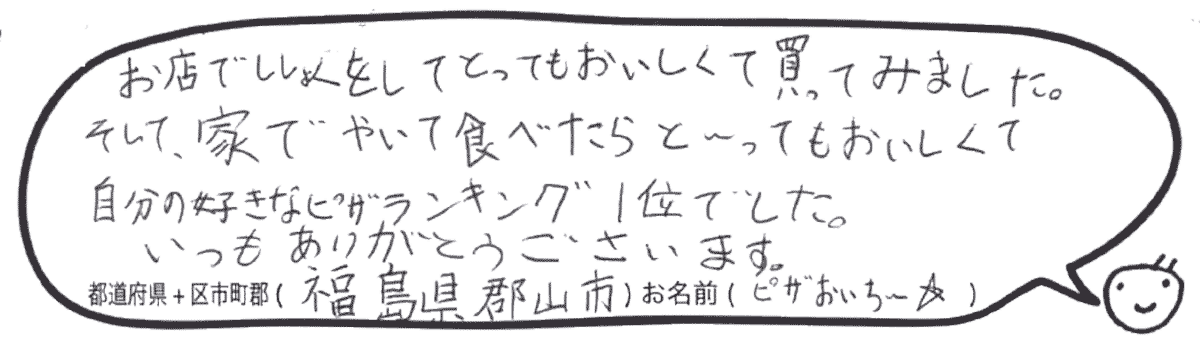 お店でししょくをしてとってもおいしくて買ってみました。
そして、家でやいて食べたらと〜ってもおいしくて
自分の好きなピザランキング1位でした。
いつもありがとうございます。
都道府県+区市町郡(福島県郡山市)お名前(ピザおいち〜☆)